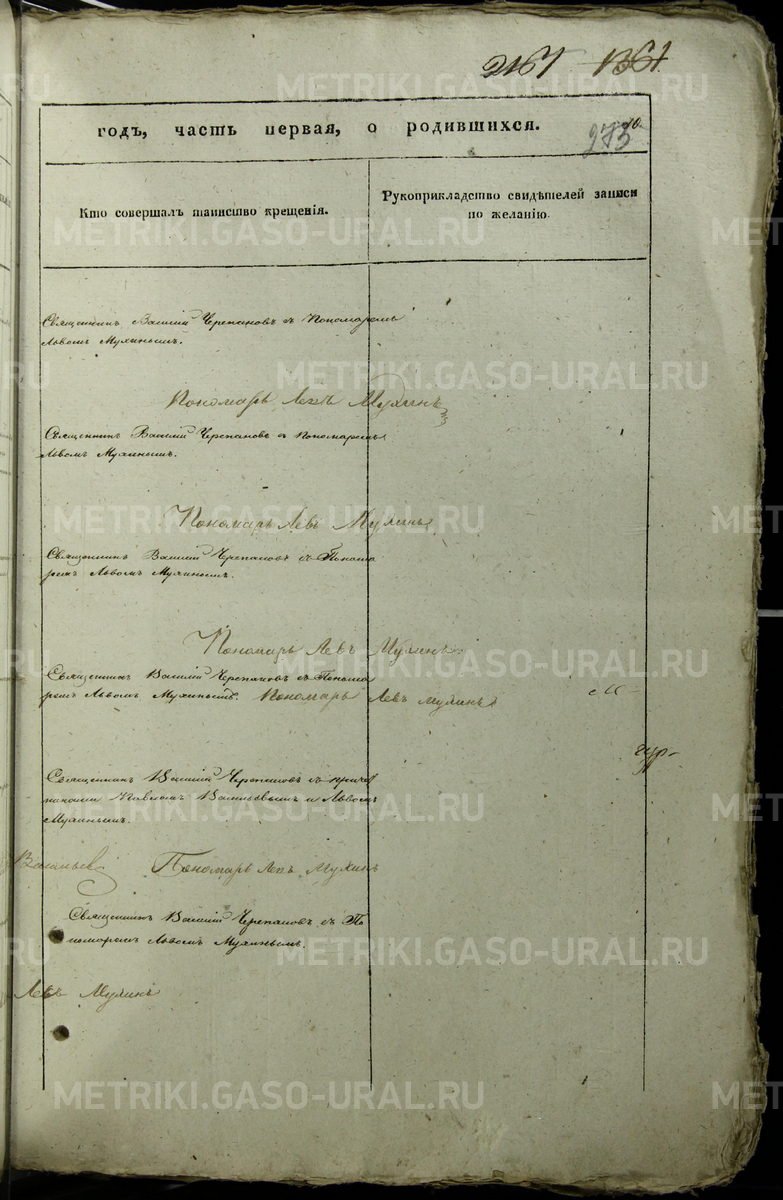 2161 1361
годъ, часть первая, о родившихся.
273
10.
Кто совершалъ таинство крещенія.
Рукоприкладство свидѣтелей записи
по желанію.
Священникъ Василій Черепановъ съ Пономаремъ
Львомъ Мухинымъ.
Пономарь Левъ Мухинъ
Священникъ Василій Черепановъ съ Пономаремъ
Львомъ Мухинымъ.
Пономарь Левъ Мухинъ
Священникъ Василій Черепановъ съ Понома
ремъ Львомъ Мухинымъ.
Пономарь Левъ Мухинъ
Священникъ Василій Черепановъ съ Понома
ремъ Львомъ Мухинымъ. Пономарь Левъ Мухинъ
Священникъ Василій Черепановъ съ причет
никами Васильевымъ и Львомъ
Мухинымъ.
Васильев Пономарь Левъ Мухинъ
Священникъ Василій Черепановъ съ По
номаремъ Львомъ Мухинымъ.
Левъ Мухинъ
METRIKI.GASO-URAL.RU